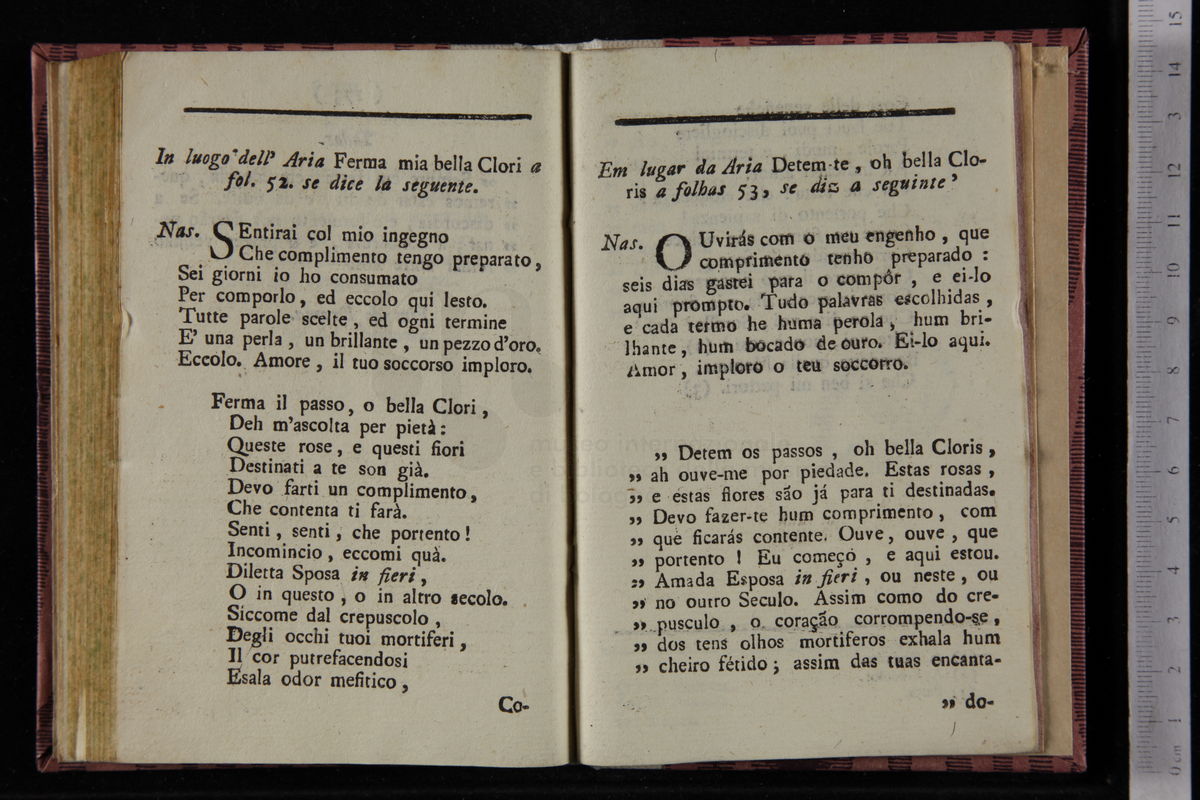 In luogo dell' Aria Ferma mia bella Clori a
fol. 52. se dice la seguente.
Nas. SEntirai col mio ingegno
Che complimento tengo preparato,
Sei giorni io ho consumato
Per comporlo, ed eccolo qui lesto.
Tutte parole scelte, ed ogni termine
E' una perla, un brillante, un pezzo d'oro.
Eccolo. Amore, il tuo soccorso imploro.
Ferma il passo, o bella Clori,
Deh m'ascolta per pietà:
Queste rose, e questi fiori
Destinati a te son già.
Devo farti un complimento,
Che contenta ti farà.
Senti, senti, che portento!
Incomincio, eccomi quà.
Diletta Sposa in fieri,
O in questo, o in altro secolo.
Siccome dal crepuscolo,
Degli occhi tuoi mortiferi,
Il cor putrefacendosi
Esala odor mefitico,
Co-
Em lugar da Aria Detem-te, oh bella Clo-
ris a folhas 53, se diz a seguinte
Nas. OUvirás com o meu engenho, que
comprimento tenho preparado:
seis dias gastei para o compôr, e ei-lo
aqui prompto. Tudo palavras escolhidas,
e cada termo he huma perola, hum bri-
lhante, hum bocado de ouro. Ei-lo aqui.
Amor, imploro o teu soccorro.
„ Detem os passos, oh bella Cloris,
„ ah ouve-me por piedade. Estas rosas,
„ e estas flores são já para ti destinadas.
„ Devo fazer-te hum comprimento, com
„ que ficarás contente. Ouve, ouve, que
„ portento! Eu começo, e aqui estou.
„ Amada Esposa in fieri, ou neste, ou
„ no outro Seculo. Assim como do cre-
„ pusculo, o coração corrompendo-se,
„ dos tens olhos mortiferos exhala hum
„ cheiro fétido; assim das tuas encanta-
„ do-
0 cm 1 2 3 4 5 6 7 8 9 10 11 12 13 14 15